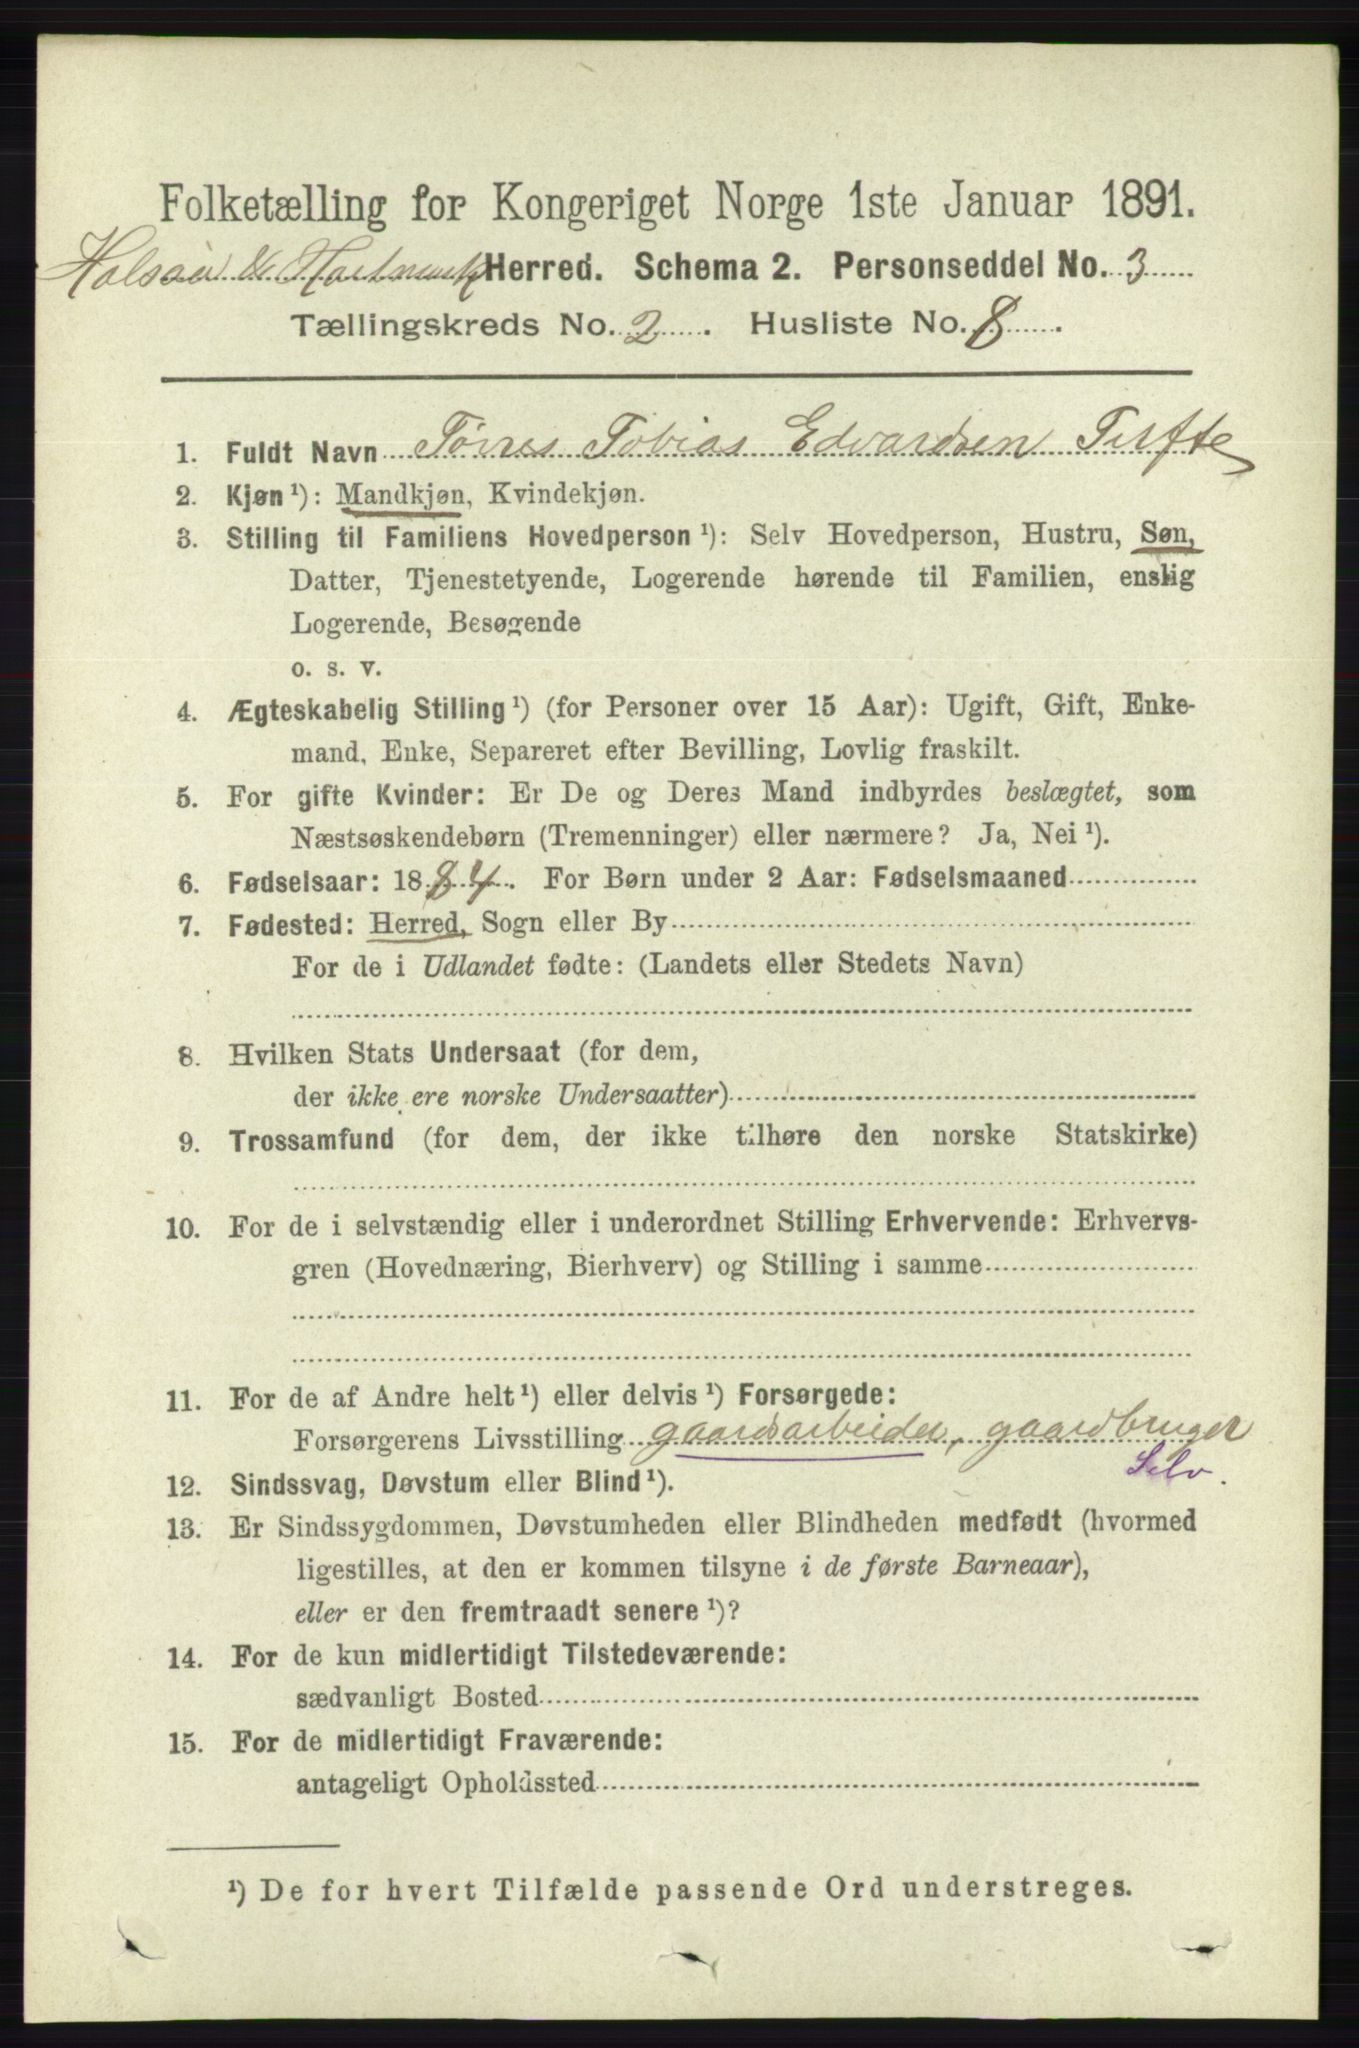 Folketælling for Kongeriget Norge 1ste Januar 1891.
Halsaa & Hartmark Herred. Schema 2. Personseddel No. 3
Tællingskreds No. 2. Husliste No. 8.
1. Fuldt Navn Tørres Tobias Edvardsen Tufte
2. Kjøn ¹): Mandkjøn, Kvindekjøn.
3. Stilling til Familiens Hovedperson ¹): Selv Hovedperson, Hustru, Søn,
Datter, Tjenestetyende, Logerende hørende til Familien, enslig
Logerende, Besøgende
o. s. v.
4. Ægteskabelig Stilling ¹) (for Personer over 15 Aar): Ugift, Gift, Enke-
mand, Enke, Separeret efter Bevilling, Lovlig fraskilt.
5. For gifte Kvinder: Er De og Deres Mand indbyrdes beslægtet, som
Næstsøskendebørn (Tremenninger) eller nærmere? Ja, Nei ¹).
6. Fødselsaar: 1884. For Børn under 2 Aar: Fødselsmaaned
7. Fødested: Herred, Sogn eller By
For de i Udlandet fødte: (Landets eller Stedets Navn)
8. Hvilken Stats Undersaat (for dem,
der ikke ere norske Undersaatter)
9. Trossamfund (for dem, der ikke tilhøre den norske Statskirke)
10. For de i selvstændig eller i underordnet Stilling Erhvervende: Erhvervs-
gren (Hovednæring, Bierhverv) og Stilling i samme
11. For de af Andre helt ¹) eller delvis ¹) Forsørgede:
Forsørgerens Livsstilling gaardsarbeider, gaardbruger
Selv.
12. Sindssvag, Døvstum eller Blind ¹).
13. Er Sindssygdommen, Døvstumheden eller Blindheden medfødt (hvormed
ligestilles, at den er kommen tilsyne i de første Barneaar),
eller er den fremtraadt senere ¹)?
14. For de kun midlertidigt Tilstedeværende:
sædvanligt Bosted
15. For de midlertidigt Fraværende:
antageligt Opholdssted
¹) De for hvert Tilfælde passende Ord understreges.